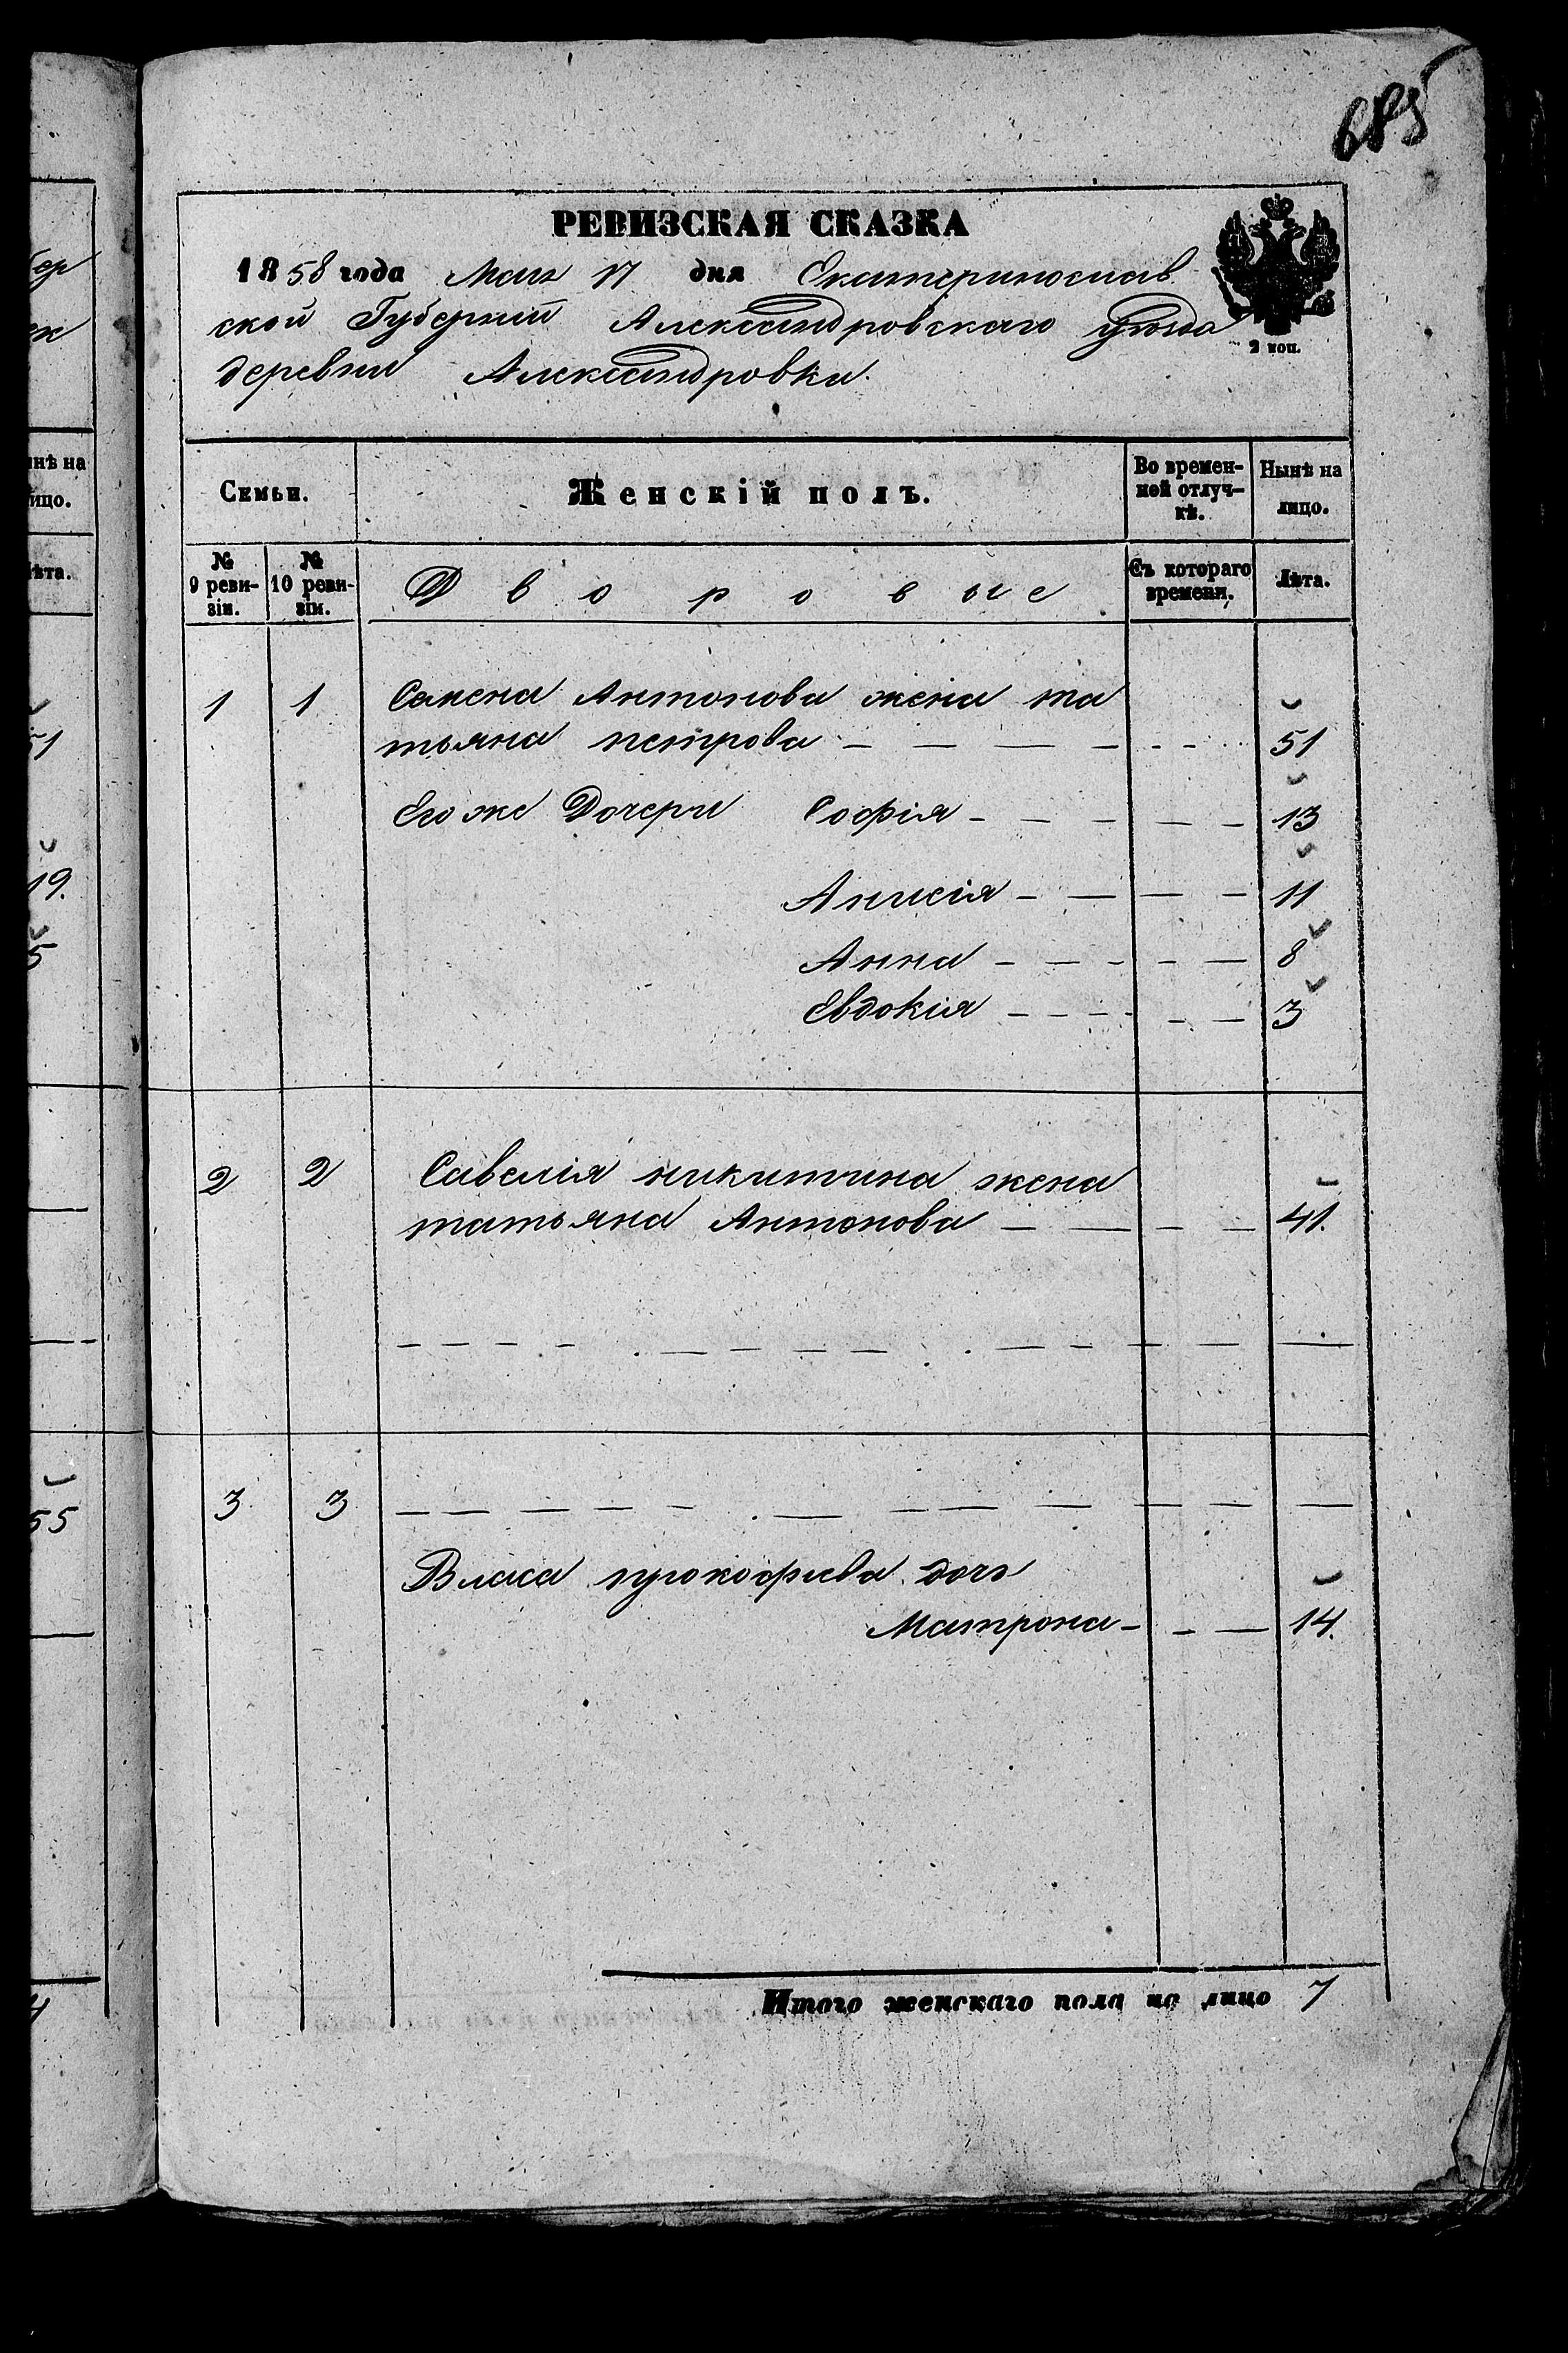 685
РЕВИЗСКАЯ СКАЗКА
1858 года Мая 17 дня Екатеринослав
ской Губерніи Александровскаго уѣзда
2 коп.
деревни Александровки.
нѣ на
ицо.
Семьи.
Женскій полъ.
Во времен-
ной отлуч-
кѣ.
Нынѣ на
лицо.
ѣта.
№
9 реви-
зіи.
№
10 реви-
зіи.
Дворовые
Съ котораго
времени.
Лѣта.
1 1 Семена Антонова жена та
тьяна петрова — — — — - - - 51
51
Его же Дочери Софія - — — — — — 13
19.
Анисія - — — — — 11
5
Анна - — - - — 8
Евдокія - - - - - — 3
2 2 Савелія никитина жена
татьяна Антонова — — - — 41.
3 3 — — — — - . — — — — — — —
55
Власа прокофьева дочь
Матрона - - — 14.
Итого женскаго пола на лицо 7
4